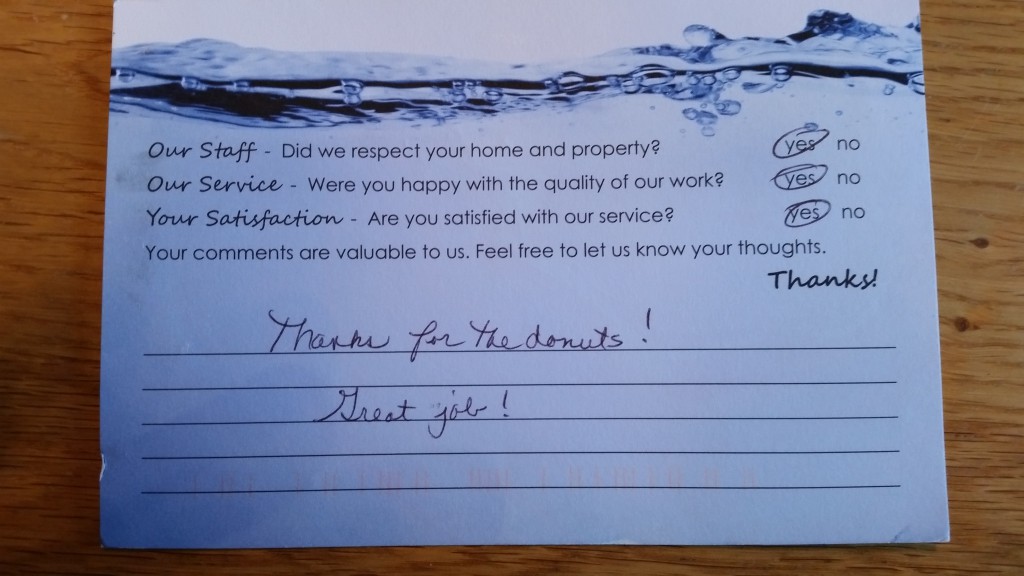 Our Staff - Did we respect your home and property? yes no
Our Service - Were you happy with the quality of our work? yes no
Your Satisfaction - Are you satisfied with our service? yes no
Your comments are valuable to us. Feel free to let us know your thoughts.
Thanks!
Thanks for the donuts!
Great job!